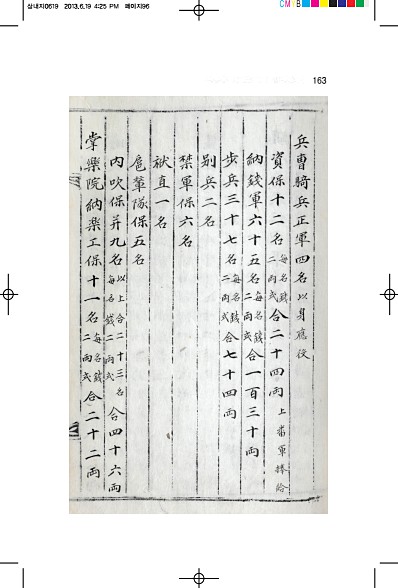 삼내지0619 2013.6.19 4:25 PM 페이지96
CMYB
163
兵曹騎兵正軍四名以身應役
資保十二名每名錢二兩式合二十四兩上番軍捧給
納錢軍六十五名每名錢二兩式合一百三十兩
步兵三十七名每名錢二兩式合七十四兩
别兵二名
禁軍保六名
狱直一名
扈輦隊保五名
內吹保并九名以上合二十三名每名錢二兩式合四十六兩
掌樂院納樂工保十一名每名錢二兩式合二十二兩